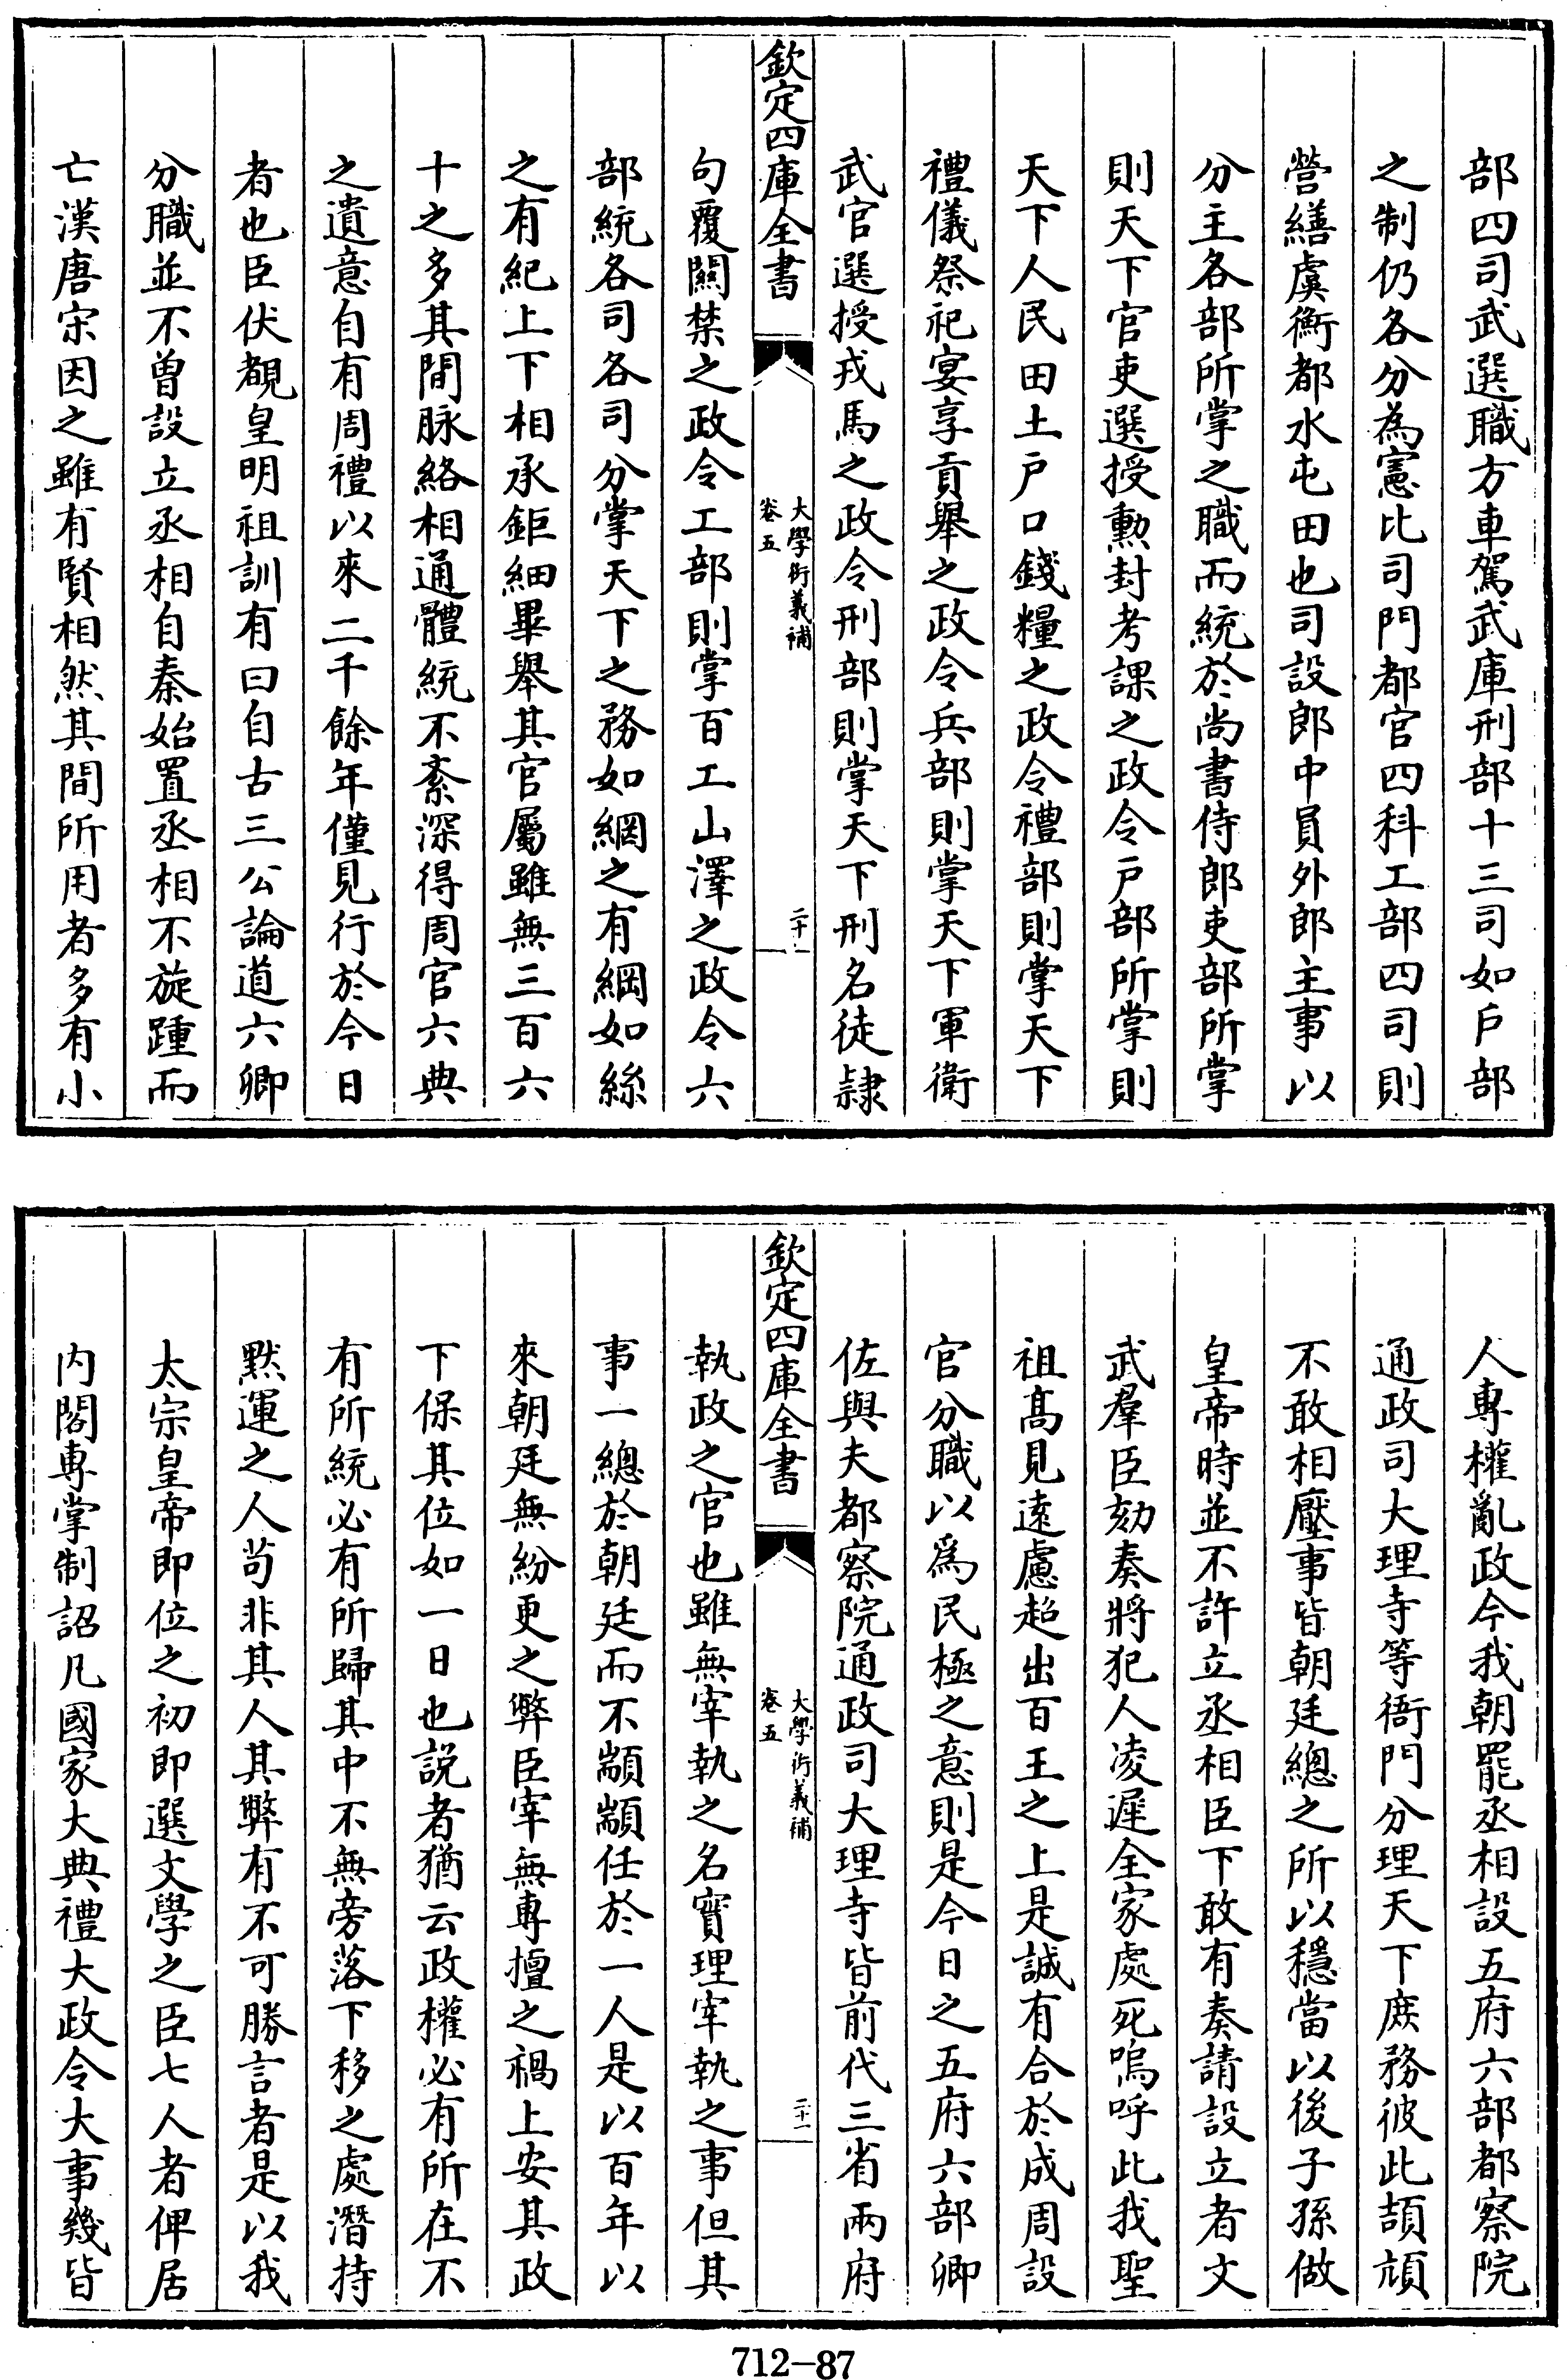 部四司武選職方車駕武庫刑部十三司如戶部
之制仍各分為憲比司門都官四科工部四司則
營繕虞衡都水屯田也司設郎中員外郎主事以
分主各部所掌之職而統於尚書侍郎吏部所掌
則天下官吏選授勲封考課之政令戶部所掌則
天下人民田土戶口錢糧之政令禮部則掌天下
禮儀祭祀宴享貢舉之政令兵部則掌天下軍衛
武官選授戎馬之政令刑部則掌天下刑名徒隷
欽定四庫全書
大學衍義補
卷五
二十
句覆關禁之政令工部則掌百工山澤之政令六
部統各司各司分掌天下之務如網之有綱如絲
之有紀上下相承鉅細畢舉其官屬雖無三百六
十之多其間脉絡相通體統不紊深得周官六典
之遺意自有周禮以來二千餘年僅見行於今日
者也臣伏覩皇明祖訓有曰自古三公論道六卿
分職並不曽設立丞相自秦始置丞相不旋踵而
亡漢唐宋因之雖有賢相然其間所用者多有小
人專權亂政今我朝罷丞相設五府六部都察院
通政司大理寺等衙門分理天下庶務彼此頡頏
不敢相壓事皆朝廷總之所以穩當以後子孫做
皇帝時並不許立丞相臣下敢有奏請設立者文
武羣臣劾奏將犯人凌遲全家處死嗚呼此我聖
祖髙見遠慮超出百王之上是誠有合於成周設
官分職以爲民極之意則是今日之五府六部卿
佐與夫都察院通政司大理寺皆前代三省兩府
欽定四庫全書
大學衍義補
卷五
二十一
執政之官也雖無宰執之名實理宰執之事但其
事一總於朝廷而不顓顓任於一人是以百年以
來朝廷無紛更之弊臣宰無專擅之禍上安其政
下保其位如一日也説者猶云政權必有所在不
有所統必有所歸其中不無旁落下移之處潛持
黙運之人苟非其人其弊有不可勝言者是以我
太宗皇帝即位之初即選文學之臣七人者俾居
内閣專掌制詔凡國家大典禮大政令大事幾皆
712-87